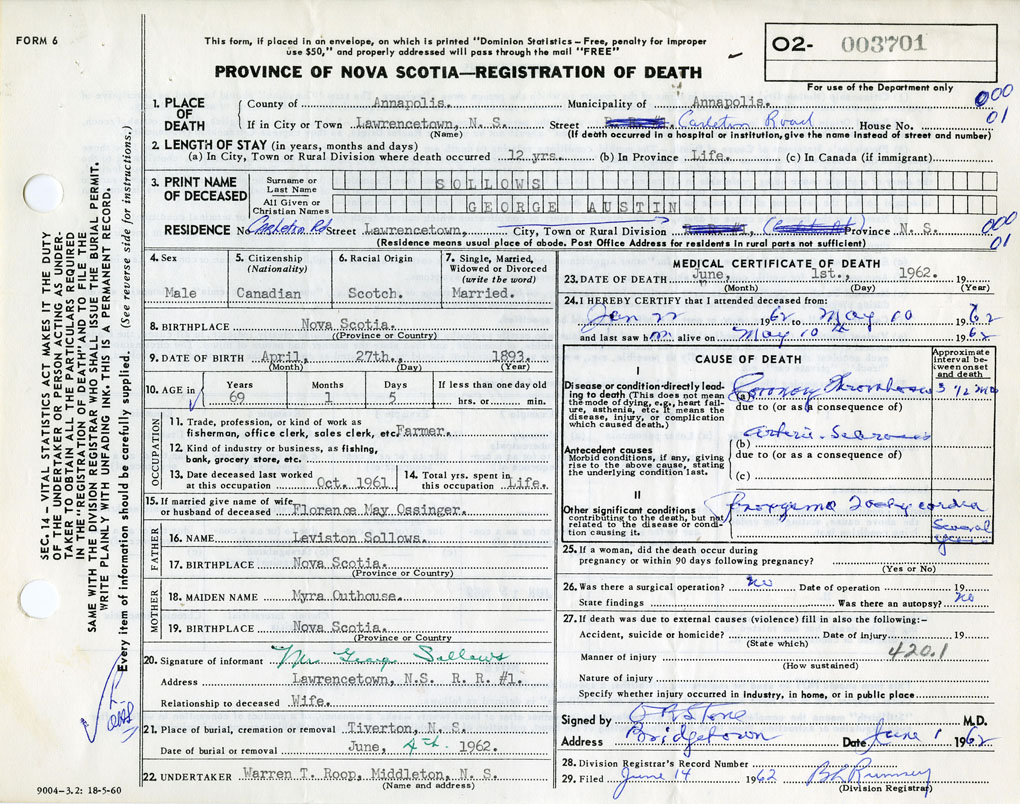 FORM 6
This form, if placed in an envelope, on which is printed "Dominion Statistics – Free, penalty for improper
use $50," and properly addressed will pass through the mail "FREE"
PROVINCE OF NOVA SCOTIA—REGISTRATION OF DEATH
O2- 003701
For use of the Department only
000
01
1. PLACE OF DEATH
County of Annapolis. Municipality of Annapolis.
If in City or Town Lawrencetown, N. S. Street Carleton Road House No.
(Name) (If death occurred in a hospital or institution, give the name instead of street and number)
2. LENGTH OF STAY (in years, months and days)
(a) In City, Town or Rural Division where death occurred 12 yrs. (b) In Province Life. (c) In Canada (if immigrant)
3. PRINT NAME OF DECEASED
Surname or Last Name SOLLOWS
All Given or Christian Names GEORGE AUSTIN
RESIDENCE No Carleton Rd Street Lawrencetown, City, Town or Rural Division Province N. S.
(Residence means usual place of abode. Post Office Address for residents in rural parts not sufficient)
000
01
4. Sex
Male
5. Citizenship (Nationality)
Canadian
6. Racial Origin
Scotch.
7. Single, Married, Widowed or Divorced (write the word)
Married.
8. BIRTHPLACE Nova Scotia.
((Province or Country)
9. DATE OF BIRTH April, 27th., 1893.
(Month) (Day) (Year)
10. AGE in Years Months Days If less than one day old
69 1 5 hrs. or min.
OCCUPATION
11. Trade, profession, or kind of work as
fisherman, office clerk, sales clerk, etc. Farmer.
12. Kind of industry or business, as fishing,
bank, grocery store, etc.
13. Date deceased last worked at this occupation Oct. 1961
14. Total yrs. spent in this occupation Life.
15. If married give name of wife
or husband of deceased Florence May Ossinger.
FATHER
16. NAME Leviston Sollows.
17. BIRTHPLACE Nova Scotia.
(Province or Country)
MOTHER
18. MAIDEN NAME Myra Outhouse.
19. BIRTHPLACE Nova Scotia.
(Province or Country
20. Signature of informant Mrs George Sollows
Address Lawrencetown, N.S. R. R. #1.
Relationship to deceased Wife.
21. Place of burial, cremation or removal Tiverton, N. S.
Date of burial or removal June, 4th. 1962.
22. UNDERTAKER Warren T. Roop, Middleton, N. S.
(Name and address)
MEDICAL CERTIFICATE OF DEATH
23. DATE OF DEATH June, 1st., 1962. 19
(Month) (Day) (Year)
24. I HEREBY CERTIFY that I attended deceased from:
Jan 22 1962 to May 10 1962
and last saw him alive on May 10th 1962
CAUSE OF DEATH
Approximate interval between onset and death
I
Disease or condition-directly leading to death (This does not mean the mode of dying, e.g., heart failure, asthenia, etc. It means the disease, injury, or complication which caused death.)
(a) Coronary Thrombosis 3 1/2 mo
due to (or as a consequence of)
Antecedent causes
Morbid conditions, if any, giving rise to the above cause, stating the underlying condition last.
(b) Arterio-Sclerosis
due to (or as a consequence of)
(c)
II
Other significant conditions
contributing to the death, but not related to the disease or condition causing it.
Tachycardia
Several years
25. If a woman, did the death occur during
pregnancy or within 90 days following pregnancy?
(Yes or No)
26. Was there a surgical operation? no Date of operation 19
State findings Was there an autopsy? no
27. If death was due to external causes (violence) fill in also the following:-
Accident, suicide or homicide? Date of injury 19
(State which)
Manner of injury 420.1
(How sustained)
Nature of injury
Specify whether injury occurred in industry, in home, or in public place
Signed by Stone M.D.
Address Bridgetown Date June 1 1962
28. Division Registrar's Record Number
29. Filed June 14 1962
(Division Registrar)
SEC. 14 – VITAL STATISTICS ACT MAKES IT THE DUTY
OF THE UNDERTAKER OR PERSON ACTING AS UNDER-
TAKER TO OBTAIN ALL THE PARTICULARS REQUIRED
IN THE "REGISTRATION OF DEATH" AND TO FILE THE
SAME WITH THE DIVISION REGISTRAR WHO SHALL ISSUE THE BURIAL PERMIT.
WRITE PLAINLY WITH UNFADING INK. THIS IS A PERMANENT RECORD.
Every item of information should be carefully supplied. (See reverse side for instructions.)
9004–3.2: 18-5-60